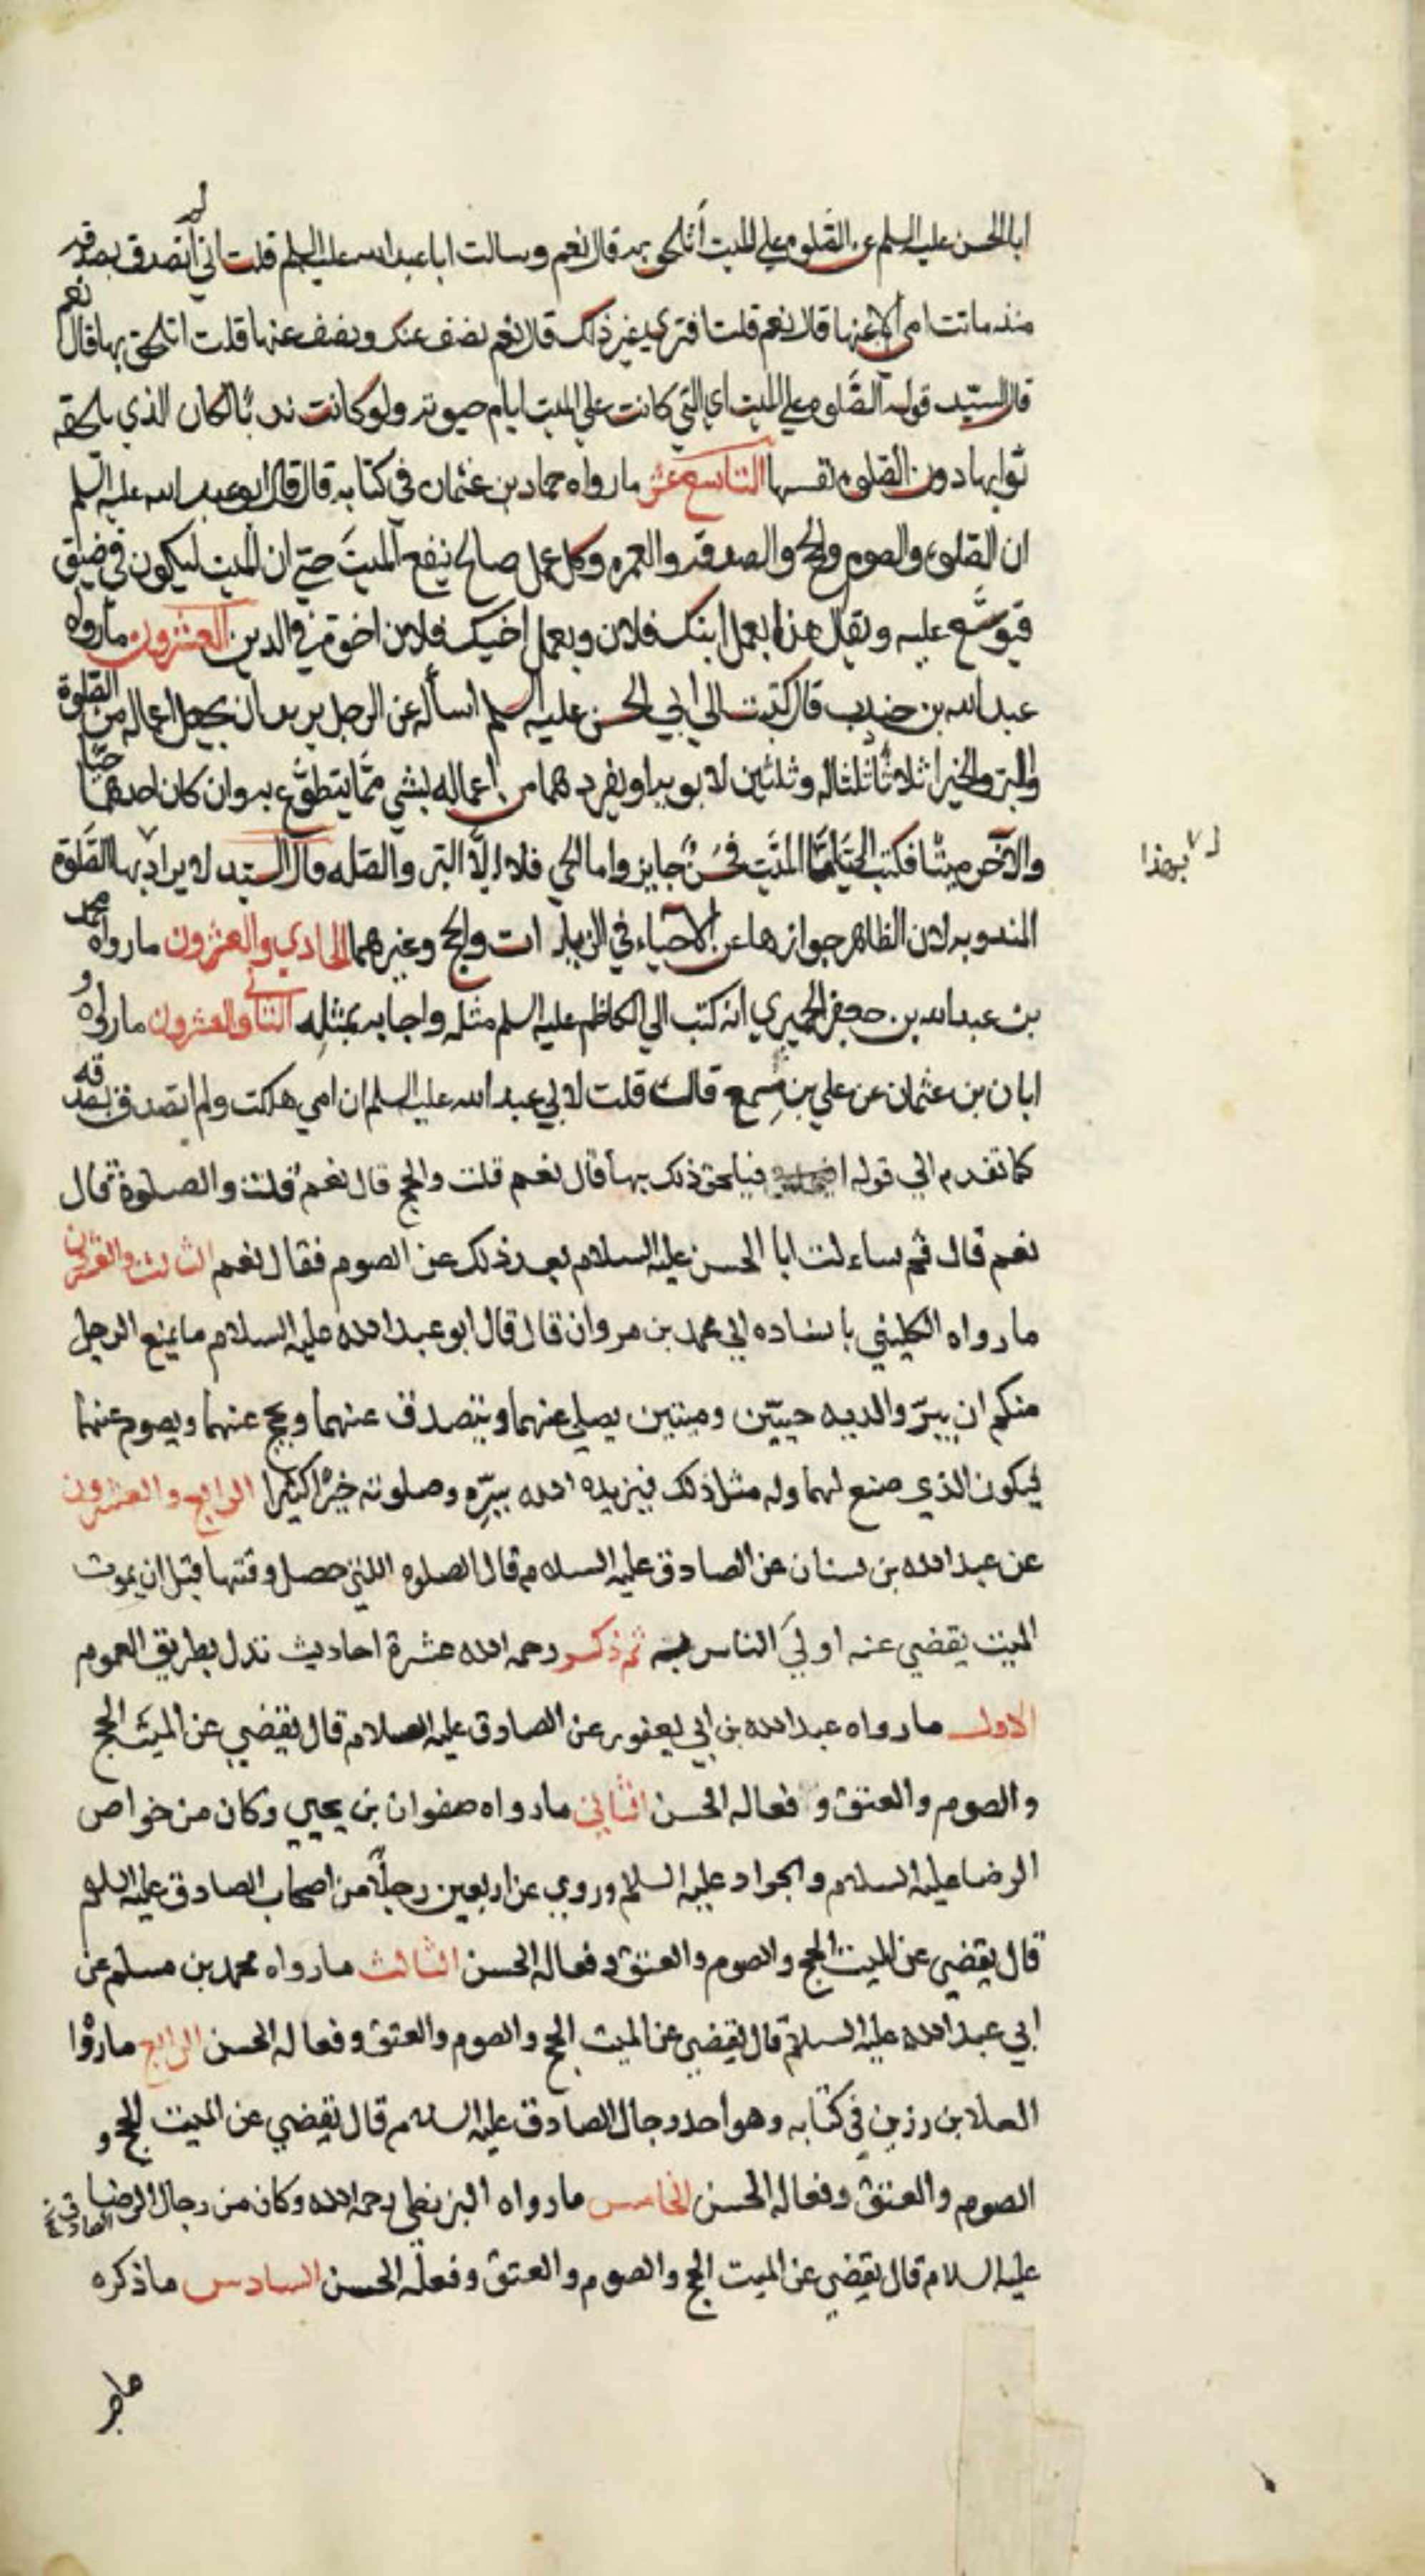 ابا الحسن عليه السلم عن الصلوة على الميت أتلحق به قال نعم وسالت ابا عبد الله عليه السلم قلت اني لم أتصدق بصدقة
منذ ماتت امي الا عنها قال نعم قلت افترى غير ذلك قال نعم نصف عنك ونصف عنها قلت اتلحق بها قال نعم
قال السيد قوله الصلوة على الميت اي التي كانت على الميت ايام حيوته ولو كانت ندبا لكان الذي يلحقه
ثوابها دون الصلوة نفسها التاسع عشر ما رواه حماد بن عثمان في كتابه قال قال ابو عبد الله عليه السلم
ان الصلوة والصوم والحج والصدقة والعمره وكل عمل صالح ينفع الميت حتى ان الميت ليكون في ضيق
فيوسع عليه ويقال هذا بعمل ابنك فلان وبعمل اخيك فلان اخوة في الدين العشرون ما رواه
عبد الله بن جندب قال كتبت الى ابي الحسن عليه السلم اسأله عن الرجل يريد ان يجعل اعماله من الصلوة
والبر والخير اثلاثا ثلثا له وثلثين لابويه او يفردهما من اعماله بشي مما يتطوع به وان كان احدهما حيا
والآخر ميتا فكتب الي اما الميت فحسن جايز واما الحي فلا الا البر والصله قال السيد لا يراد بها الصلوة
بهذا
المندوبه لان الظاهر جوازها عن الاحياء في الزيارات والحج وغيرهما الحادي والعشرون ما رواه محمد
بن عبد الله بن جعفر الحميري انه كتب الي الكاظم عليه السلم مثله واجابه بمثله الثاني والعشرون ما رواه
ابان بن عثمان عن علي بن مسمع قال قلت لابي عبد الله عليه السلم ان امي هلكت ولم اتصدق بصدقه
كما تقدم الي قوله فيلحق ذلك بها قال نعم قلت والحج قال نعم قلت والصلوة قال
نعم قال ثم ساءلت ابا الحسن عليه السلام بعد ذلك عن الصوم فقال نعم الثالث والعشرون
ما رواه الكليني باسناده الي محمد بن مروان قال قال ابو عبد الله عليه السلام ما يمنع الرجل
منكم ان يبر والديه حيين وميتين يصلي عنهما ويتصدق عنهما ويحج عنهما ويصوم عنهما
فيكون الذي صنع لهما وله مثل ذلك فيزيده الله ببره وصلوته خيرا كثيرا الرابع والعشرون
عن عبد الله بن سنان عن الصادق عليه السلام قال الصلوه اللتي حصل وقتها قبل ان يموت
الميت يقضي عنه اولي الناس به ثم ذكر رحمه الله عشرة احاديث تدل بطريق العموم
الاول ما رواه عبد الله بن ابي يعفور عن الصادق عليه السلام قال يقضي عن الميت الحج
والصوم والعتق و فعاله الحسن الثاني ما رواه صفوان بن يحيي وكان من خواص
الرضا عليه السلام والجواد عليه السلام وروي عن اربعين رجلا من اصحاب الصادق عليه السلام
قال يقضي عن الميت الحج والصوم والعتق وفعاله الحسن الثالث ما رواه محمد بن مسلم عن
ابي عبد الله عليه السلام قال يقضي عن الميت الحج والصوم والعتق وفعاله الحسن الرابع ما رواه
العلا بن رزين في كتابه وهو احد رجال الصادق عليه السلام قال يقضي عن الميت الحج و
الصوم والعتق وفعاله الحسن الخامس ما رواه البزنطي رحمه الله وكان من رجال الرضا
عليه السلام قال يقضي عن الميت الحج والصوم والعتق وفعله الحسن السادس ما ذكره